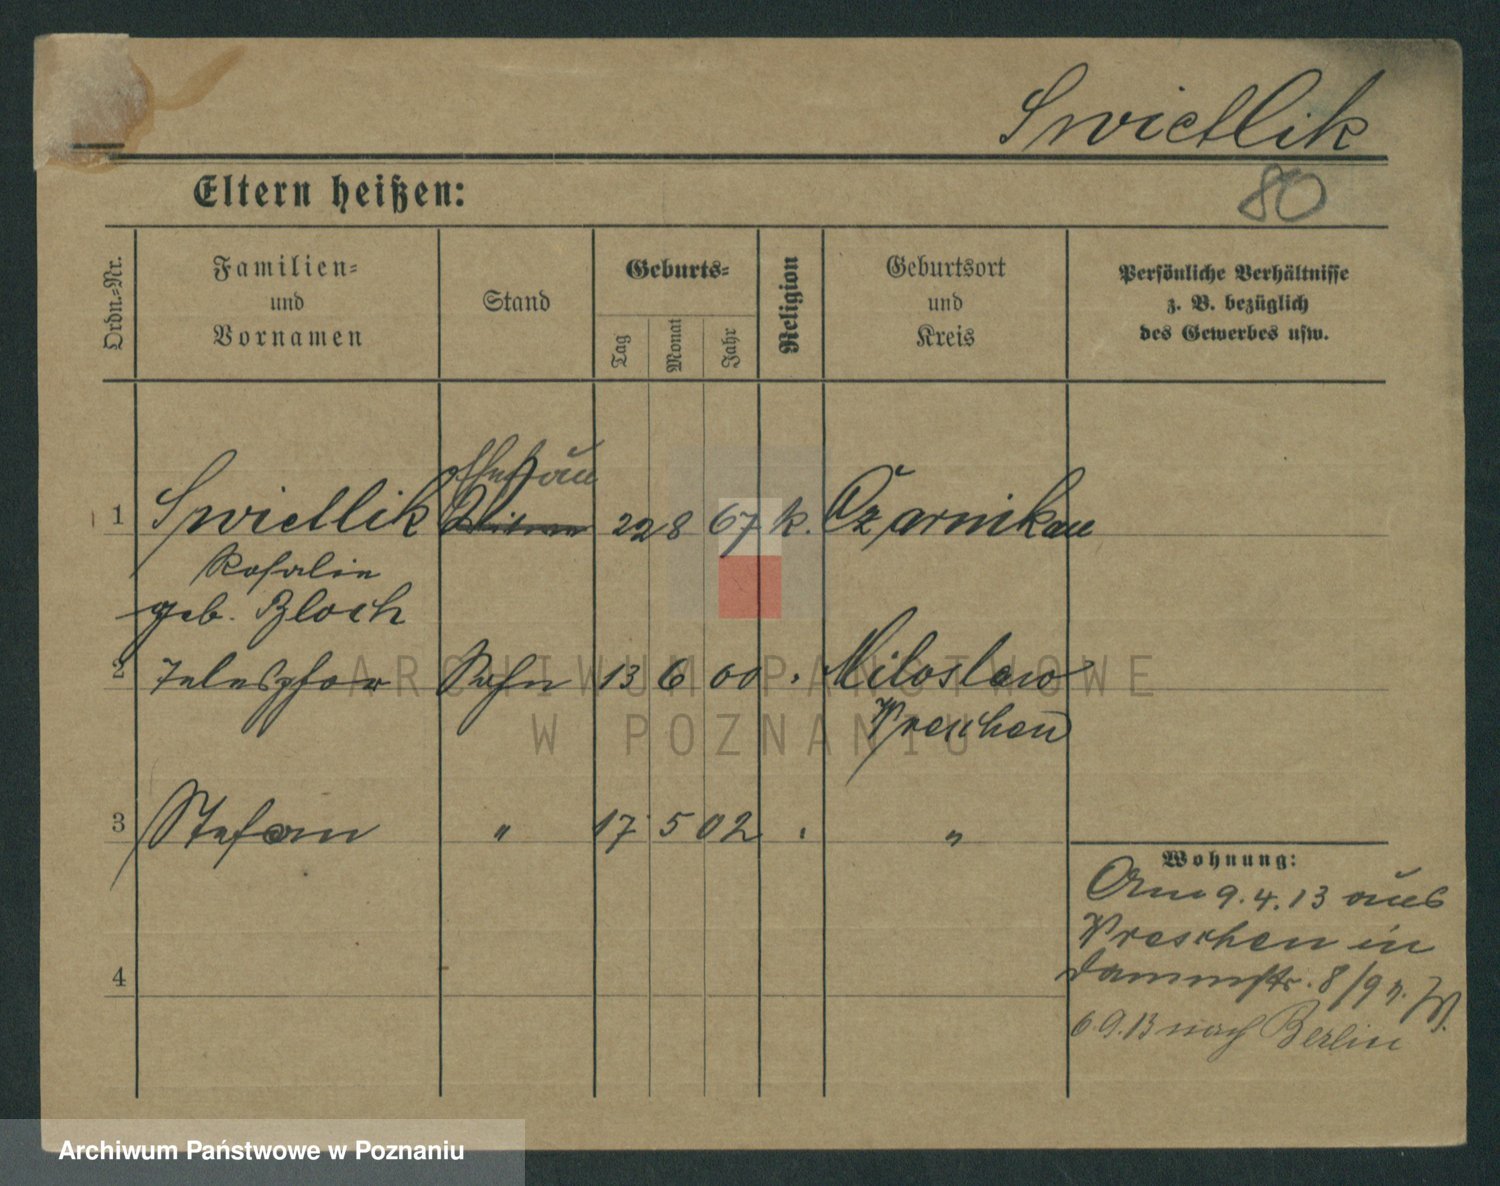 Swietlik
80
Eltern heißen:
Ordn.-Nr.
Familien-
und
Vornamen
Stand
Geburts-
Tag
Monat
Jahr
Religion
Geburtsort
und
Kreis
Persönliche Verhältnisse
z. B. bezüglich
des Gewerbes usw.
Ehefrau
1 Swietlik 22 8 67 k. Czarnikau
Rosalie
geb. Bloch
2 Telesphor Sohn 13 6 00 " Miloslaw
Wreschen
3 Stefan " 17 5 02 " "
Wohnung:
Am 9.4.13 aus
Wreschen in
Dammstr. 8/9 W.
6.9.13 nach Berlin
4
ARCHIWUM PAŃSTWOWE
W POZNANIU
Archiwum Państwowe w Poznaniu